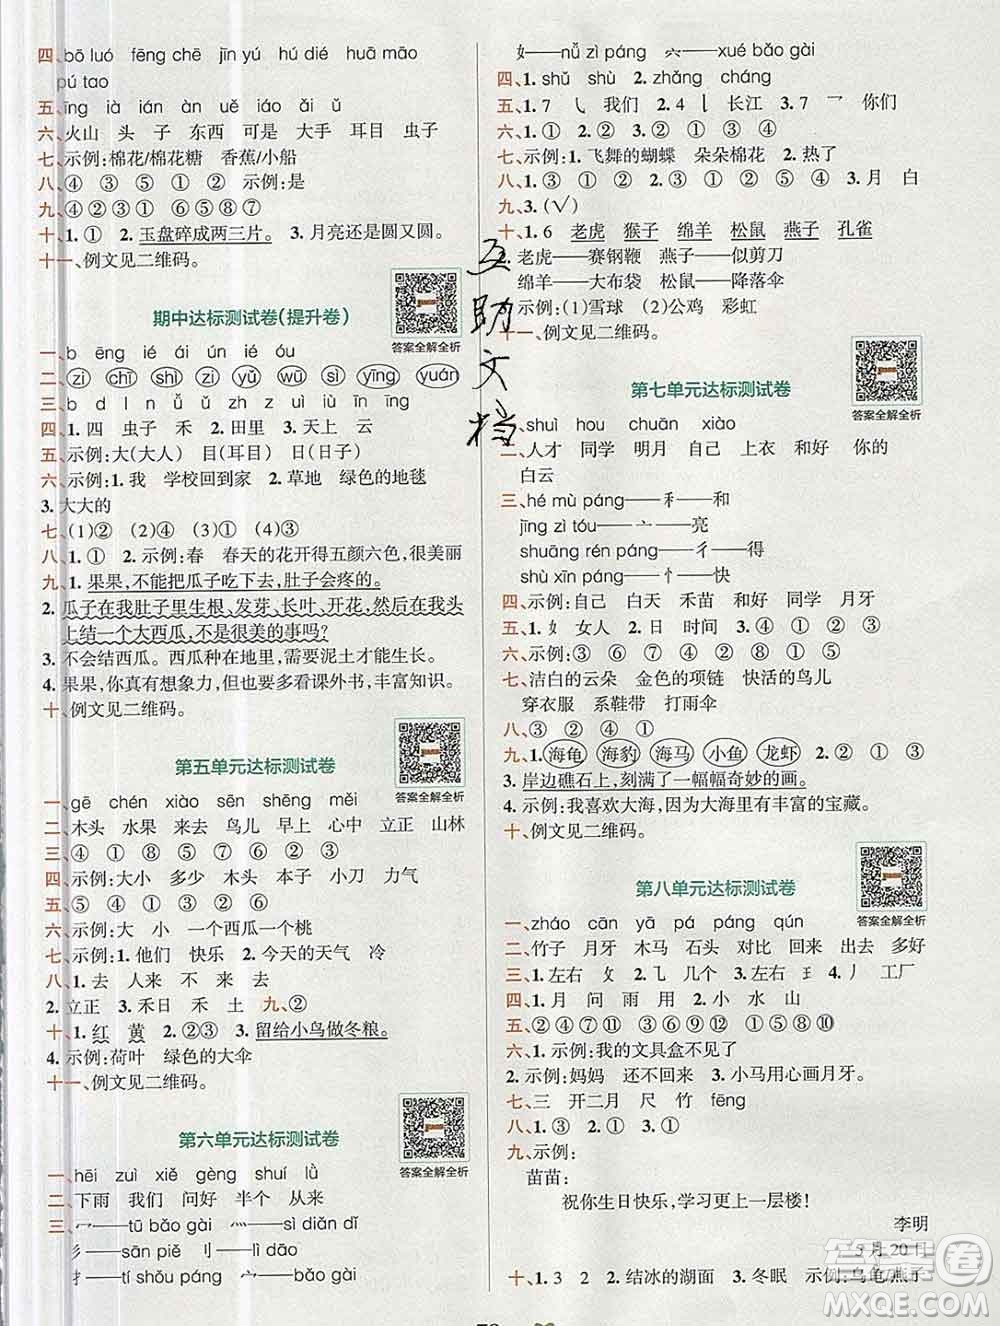 四、bō luó fēng chē jīn yú hú dié huā māo
pú tao
五、īng ià ián àn uě iáo ǎi ǔ
六、火山 头 子 东西 可是 大手 耳目 虫子
七、示例:棉花/棉花糖 香蕉/小船
八、④ ③ ⑤ ① ② 示例:是
九、④③②① ⑥⑤⑧⑦
十、1. ① 2. 玉盘碎成两三片。 3. 月亮还是圆又圆。
十一、例文见二维码。
期中达标测试卷(提升卷)
答案全解全析
一、b ēng ié ái ún ié óu
二、zi chī shì zì yǔ wǔ sì yīng yuán
三、b d l n zh x
四、1. 四 虫子 禾 2. 田里 3. 天上 云
五、示例:大(大人) 目(耳目) 日(日子)
六、示例:1. 我 学校回到家 2. 草地 绿色的地毯
3. 大大的
七、(1)② (2)④ (3)① (4)③
八、1. ① 2. 示例:春 春天的花开得五颜六色,很美丽
九、1. 果果,不能把瓜子吃下去,肚子会疼的。
2. 瓜子在我肚子里生根、发芽、长叶、开花,然后在我头
上结一个大西瓜,不是很美的事吗?
3. 不会结西瓜。西瓜种在地里,需要泥土才能生长。
4. 果果,你真有想象力,但是要多看课外书,丰富知识。
十、例文见二维码。
第五单元达标测试卷
答案全解全析
一、gē chén xiào sēn shēng měi
二、木头 水果 来去 鸟儿 早上 心中 立正 山林
三、④ ① ⑧ ⑤ ⑦ ② ③ ⑥
四、示例:大小 多少 木头 本子 小刀 力气
五、① ④ ③ ②
六、示例:大 小 一个西瓜 一个桃
七、示例:1. 他们 快乐 2. 今天的天气 冷
八、1. 去 人来 不来 人去
2. 立正 3. 禾日 禾 土 九、②
十、1. 红 黄 2. ②③ 3. 留给小鸟做冬粮。
4. 示例:荷叶 绿色的大伞
十一、例文见二维码。
第六单元达标测试卷
答案全解全析
一、hēi zuì xiě gèng shuí lǜ
二、下雨 我们 问好 半个 从来
三、冖——tū bǎo gài 灬——sì diǎn dǐ
彡——sān piě 刂——lì dāo
扌——tí shǒu páng 宀——bǎo gài
女——nǚ zì páng ——xué bǎo gài
四、1. shǔ shù 2. zhǎng cháng
五、1. 7 ㇂ 我们 2. 4 长江 3. 7 乛 你们
六、1. ① 2. ② 3. ① 4. ②
七、示例:1. 飞舞的蝴蝶 朵朵棉花 2. 热了
八、1. ① 2. ③ ④ ② ⑤ ① 3. 月 白
九、3. (√)
十、1. 6 老虎 猴子 绵羊 松鼠 燕子 孔雀
2. 老虎——赛钢鞭 燕子——似剪刀
绵羊——大布袋 松鼠——降落伞
3. 示例:(1)雪球 (2)公鸡 彩虹
十一、例文见二维码。
第七单元达标测试卷
答案全解全析
一、shuì hou chuān xiào
二、人才 同学 明月 自己 上衣 和好 你的
白云
三、hé mù páng——禾——和
jīng zì tóu——亠——亮
shuāng rén páng——彳——得
shù xīn páng——忄——快
四、示例:自己 白天 禾苗 和好 同学 月牙
五、1. 女 女人 2. 日 时间 3. ④ ① ② ③
六、示例:③ ④ ② ① ⑥ ⑤
七、洁白的云朵 金色的项链 快活的鸟儿
穿衣服 系鞋带 打雨伞
八、③ ② ④ ①
九、1. 海龟 海豹 海马 小鱼 龙虾 2. ② ① ③
3. 岸边礁石上,刻满了一幅幅奇妙的画。
4. 示例:我喜欢大海,因为大海里有丰富的宝藏。
十、例文见二维码。
第八单元达标测试卷
答案全解全析
一、zháo cān yā pá páng qún
二、竹子 月牙 木马 石头 对比 回来 出去 多好
三、1. 左右 攵 2. ㇈ 几个 3. 左右 王 4. 丿 工厂
四、1. 月 问 雨 用 2. 小 水 山
五、②④③⑥⑨⑦①⑤⑧⑩
六、1. 示例:我的文具盒不见了
2. 示例:妈妈 还没回来 3. 小马用心画月牙。
七、三 开二月 尺 竹 fēng
八、1. ③ ① ② 2. ①
九、示例:
苗苗:
祝你生日快乐,学习更上一层楼!
李明
5月20日
十、1. 3 2 2. 结冰的湖面 3. 冬眠 示例:乌龟/燕子
互助文档
答案圈
MXQE.COM